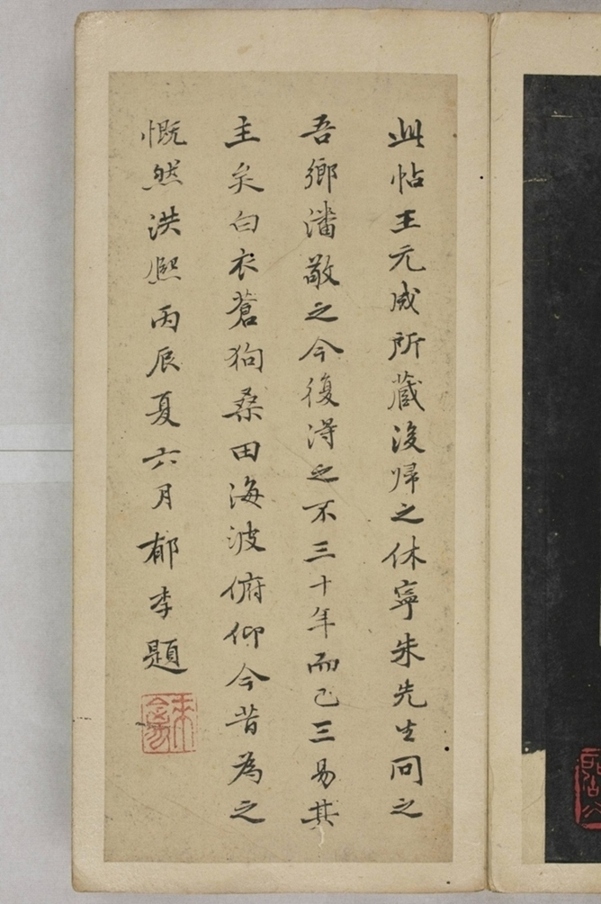 此帖王元成所藏後歸之休寧朱先生同之
吾鄉潘敬之今復得之不三十年而已三易其
主矣白衣蒼狗桑田海波俯仰今昔為之
慨然洪熙丙辰夏六月郁李題